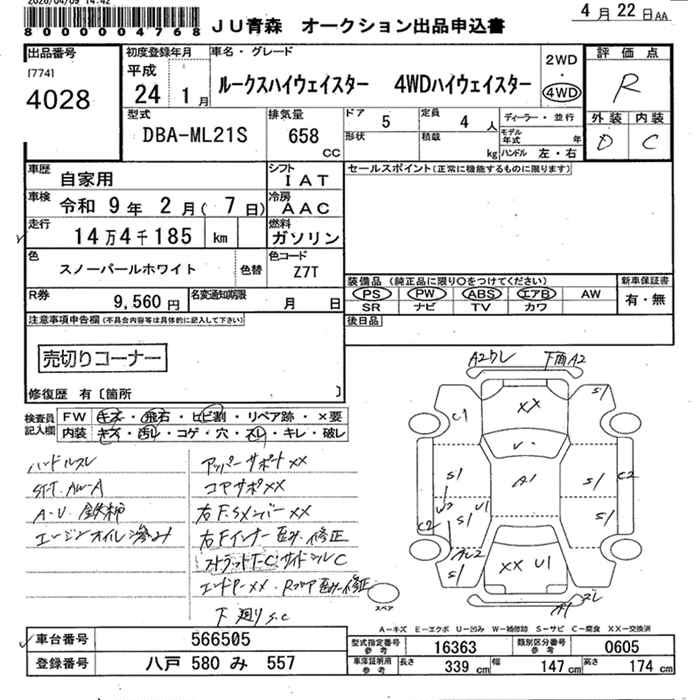 2026/04/09 14:42
8000004768
JU青森 オークション出品申込書
4月22日AA
出品番号
[774]
4028
初度登録年月
平成
24 1月
車名・グレード
ルークスハイウェイスター 4WDハイウェイスター
2WD
・
4WD
評価点
R
外装 内装
D C
型式
DBA-ML21S
排気量
658
cc
ドア 5
形状
定員 4 人
積載 kg
ディーラー・並行
モデル年式 年
ハンドル 左・右
車歴
自家用
シフト
IAT
セールスポイント(正常に機能するものに限ります)
車検
令和 9年 2月(7日)
冷房
AAC
走行
14万4千185 km
燃料
ガソリン
色
スノーパールホワイト
色替
色コード
Z7T
装備品(純正品に限り○をつけてください)
PS PW ABS エアB AW
SR ナビ TV カワ
新車保証書
有・無
R券
9,560円
名変通知期限
月 日
後日品
注意事項申告欄(不具合内容等は具体的に記入して下さい)
売切りコーナー
修復歴 有〔箇所 〕
検査員記入欄
FW キズ・飛石・ヒビ割・リペア跡・×要
内装 キズ・汚れ・コゲ・穴・スレ・キレ・破レ
ハンドルスレ
ST-T. AW-A
A-U 鉄柿
エンジンオイル滲み
アッパーサポート××
コアサポ××
右F.Sメンバー××
右Fインナー凹み修正
ストラットT-C サイドシルC
エンドP-×× Rフロア凹み修正
下廻りS.C
A2ワレ
下面A2
S1
××
C1
A1
S1
S1
C2
W2
U1
C2
S1
S1
S1
××
U1
スペア
A-キズ E-エクボ U-凹み W-補修跡 S-サビ C-腐食 ××-交換済
車台番号
566505
登録番号
八戸 580 み 557
型式指定番号
参考
16363
類別区分番号
参考
0605
車庫証明用
参考
長さ 339 cm
幅 147 cm
高さ 174 cm